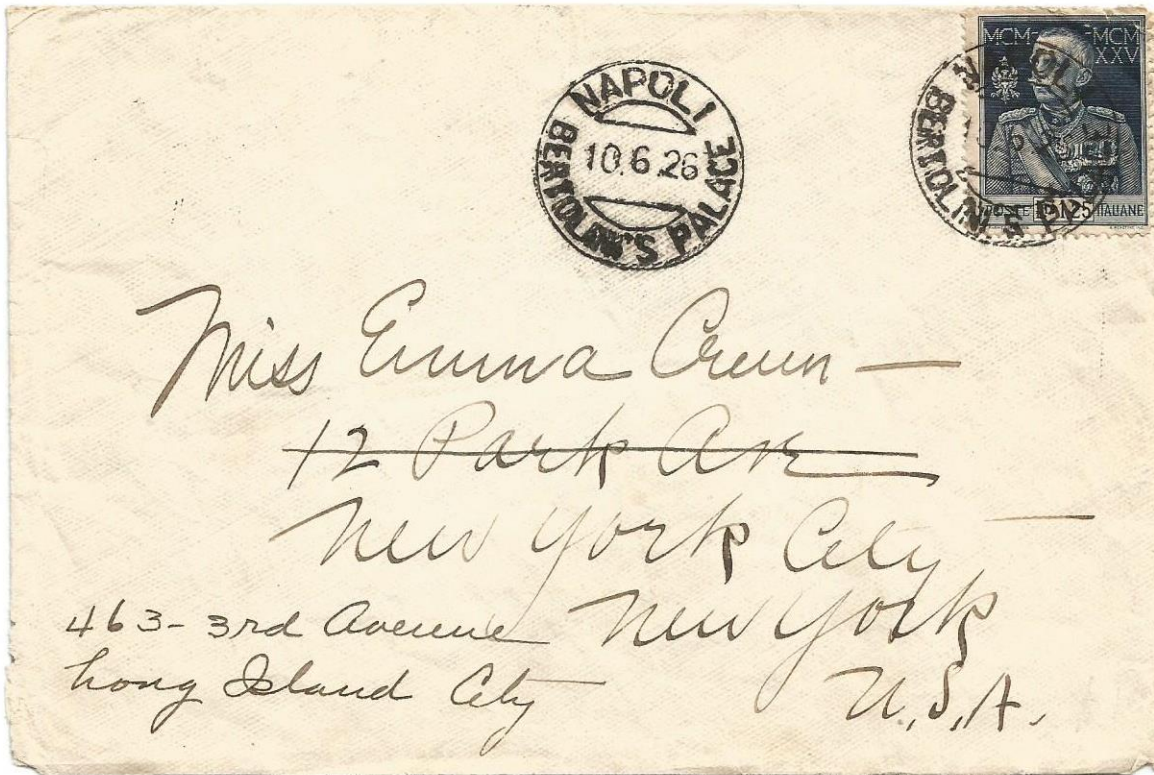 NAPOLI
10.6.26
BERTOLINI'S PALACE
MCM- MCM
XXV
POSTE 1,25 ITALIANE
NAPOLI
BERTOLINI'S PALACE
Miss Emma
12 Park Ave
New York City
New York
U.S.A.
463-3rd Avenue
Long Island City